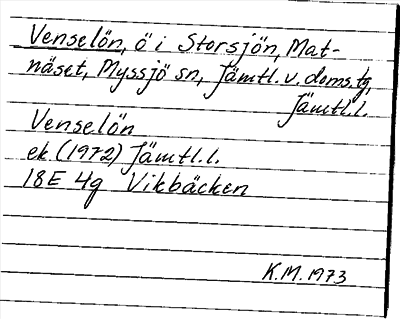 Venselön, ö i Storsjön, Mat-
näset, Myssjö sn, Jämtl. v. doms.tg,
Jämtl.l.
Venselön
ek (1972) Jämtl.l.
18E 4g Vikbäcken
K.M. 1973